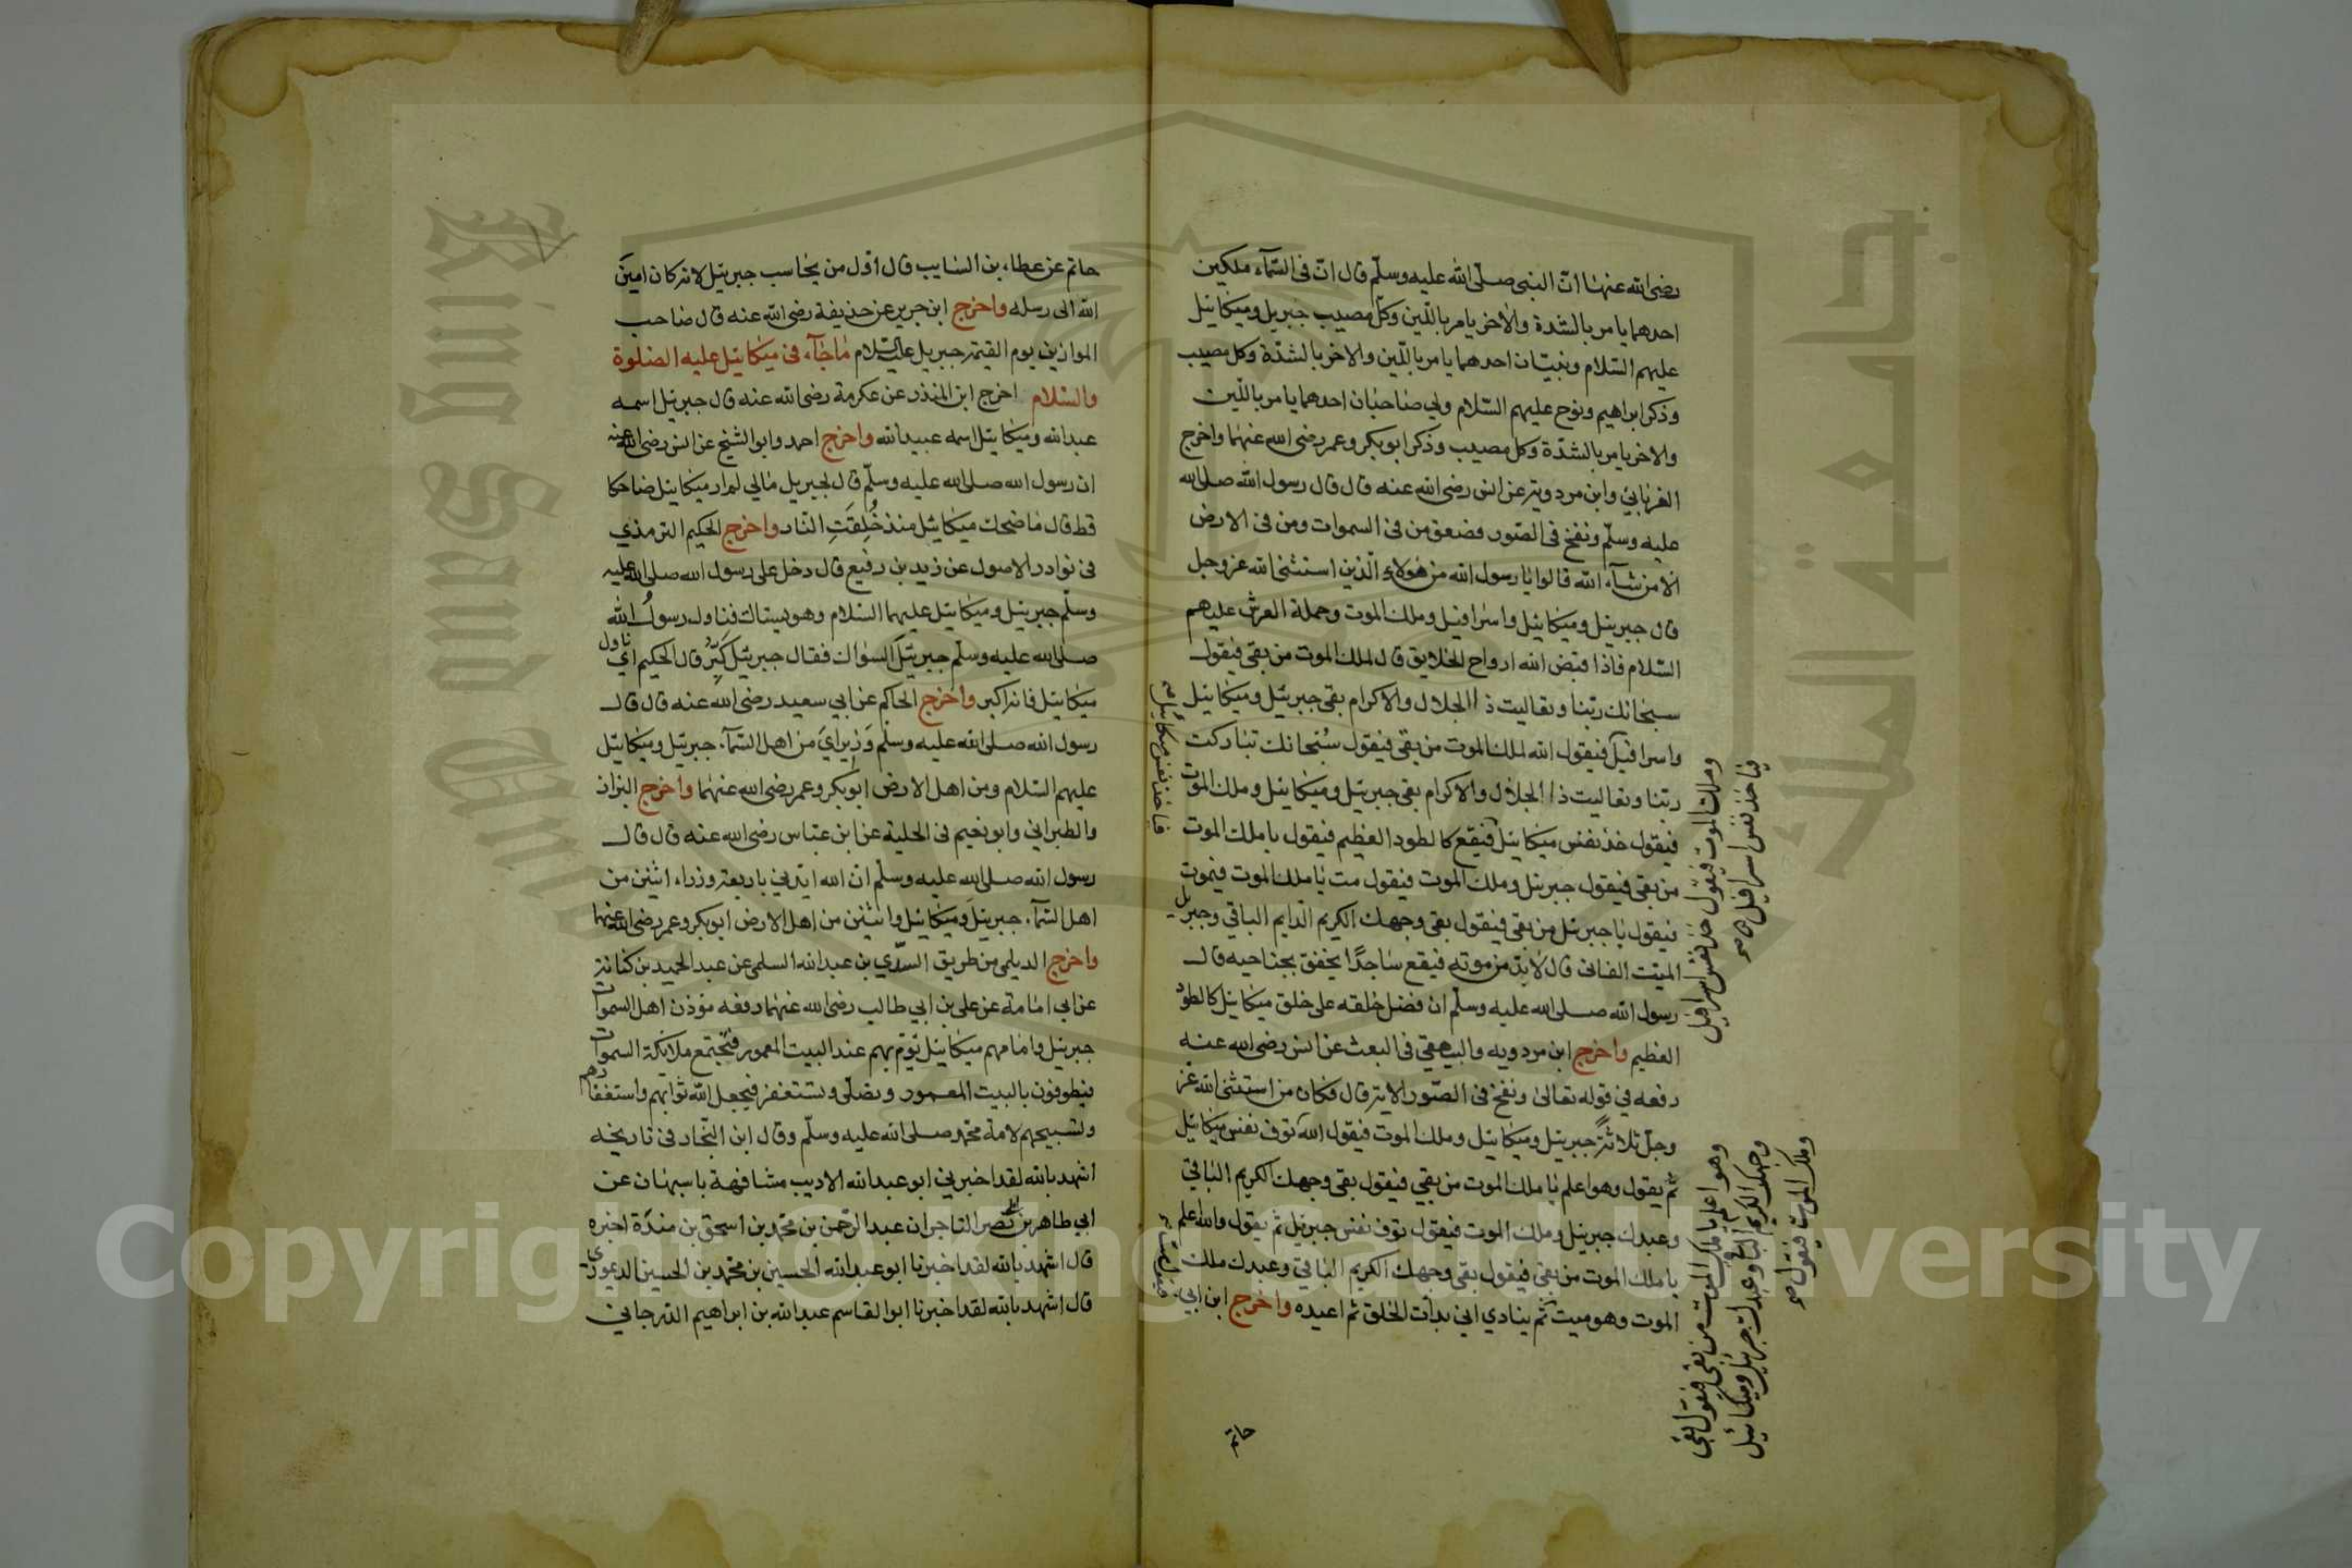 رضى الله عنها ان النبى صلى الله عليه وسلم قال ان فى السمآء ملكين
احدهما يامر بالشدة والاخر يامر باللين وكل مصيب جبريل وميكائيل
عليهم السلام ونبيان احدهما يامر باللين والاخر بالشدة وكل مصيب
وذكر ابراهيم ونوح عليهم السلام ولي صاحبان احدهما يامر باللين
والاخر يامر بالشدة وكل مصيب وذكر ابوبكر وعمر رضى الله عنهما واخرج
الفريابي وابن مردويه عن انس رضى الله عنه قال قال رسول الله صلى الله
عليه وسلم ونفخ فى الصور فصعق من فى السموات ومن فى الارض
الا من شآء الله قالوا يا رسول الله من هولاء الذين استثنى الله عز وجل
قال جبريئل وميكائيل واسرافيل وملك الموت وحملة العرش عليهم
السلام فاذا قبض الله ارواح الخلايق قال لملك الموت من بقى فيقول
سبحانك ربنا وتعاليت ذا الجلال والاكرام بقى جبريئل وميكائيل
واسرافيل فيقول الله لملك الموت من بقى فيقول سبحانك تباركت
ربنا وتعاليت ذا الجلال والاكرام بقى جبريئل وميكائيل وملك الموت
فيقول خذ نفس ميكائيل فيقع كالطود العظيم فيقول يا ملك الموت
من بقى فيقول جبريئل وملك الموت فيقول مت يا ملك الموت فيموت
فيقول يا جبريئل من بقى فيقول بقى وجهك الكريم الدايم الباقي وجبريل
الميت الفانى قال لا بد من موته فيقع ساجدا يخفق بجناحيه قال
رسول الله صلى الله عليه وسلم ان فضل خلقه على خلق ميكائيل كالطود
العظيم واخرج ابن مردويه والبيهقي فى البعث عن انس رضى الله عنه
رفعه في قوله تعالى ونفخ فى الصور الاية قال فكان من استثنى الله عز
وجل ثلاثة جبريئل وميكائيل وملك الموت فيقول الله توف نفس ميكائيل
ثم يقول وهو اعلم يا ملك الموت من بقي فيقول بقى وجهك الكريم الباقي
وعبدك جبريئل وملك الموت فيقول توف نفس جبريئل ثم يقول والله اعلم
يا ملك الموت من بقى فيقول بقى وجهك الكريم الباقي وعبدك ملك
الموت وهو ميت ثم ينادي اني بدات الخلق ثم اعيده واخرج ابن ابي
حاتم
وملك الموت فيقول خذ نفس اسرافيل
فياخذ نفس اسرافيل صح
فياخذ نفس ميكائيل صح
وهو اعلم يا ملك الموت من بقى فيقول بقى
وجهك الكريم الباقي وعبدك جبرئيل وميكائيل
وملك الموت فيقول صح
حاتم عن عطاء بن السايب قال اول من يحاسب جبريئل لانه كان امين
الله الى رسله واخرج ابن جرير عن حذيفة رضى الله عنه قال صاحب
الموازين يوم القيمة جبريل عليه السلام ماجآء فى ميكائيل عليه الصلوة
والسلام اخرج ابن المنذر عن عكرمة رضى الله عنه قال جبريئل اسمه
عبد الله وميكائيل اسمه عبيد الله واخرج احمد وابو الشيخ عن انس رضى الله عنه
ان رسول الله صلى الله عليه وسلم قال لجبريل مالي لم ار ميكائيل ضاحكا
قط قال ما ضحك ميكائيل منذ خُلِقَتِ النار واخرج الحكيم الترمذي
فى نوادر الاصول عن زيد بن رفيع قال دخل على رسول الله صلى الله عليه
وسلم جبريئل وميكائيل عليهما السلام وهو يستاك فناول رسولُ الله
صلى الله عليه وسلم جبريئل السواك فقال جبريئل كبِّرْ قال الحكيم اي ناول
ميكائيل فانه اكبر واخرج الحاكم عن ابي سعيد رضى الله عنه قال قال
رسول الله صلى الله عليه وسلم وَزيرايَ من اهل السمآء جبريئل وميكائيل
عليهم السلام ومن اهل الارض ابوبكر وعمر رضى الله عنهما واخرج البزاز
والطبراني وابو نعيم فى الحلية عن ابن عباس رضى الله عنه قال قال
رسول الله صلى الله عليه وسلم ان الله ايدني باربعة وزراء اثنين من
اهل السمآء جبريئل وميكائيل واثنين من اهل الارض ابوبكر وعمر رضى الله عنهما
واخرج الديلمي من طريق السدي بن عبد الله السلمى عن عبد الحميد بن كنانة
عن ابي امامة عن على بن ابي طالب رضى الله عنهما رفعه موذن اهل السموات
جبريئل وامامهم ميكائيل يوم بهم عند البيت المعمور فتجتمع ملايكة السموات
فيطوفون بالبيت المعمور وتصلى وتستغفر فيجعل الله ثوابهم واستغفارهم
وتسبيحهم لامة محمد صلى الله عليه وسلم وقال ابن النجار فى تاريخه
اشهد بالله لقد اخبرني ابو عبد الله الاديب مشافهة باسبهان عن
ابي طاهر بن نصر التاجر ان عبد الرحمن بن محمد بن اسحق بن مندة اخبره
قال اشهد بالله لقد اخبرنا ابو عبد الله الحسين بن محمد بن الحسين
قال اشهد بالله لقد اخبرنا ابو القاسم عبد الله بن ابراهيم الجرجاني
King Saud University
جامعة الملك
Copyright © King Saud University